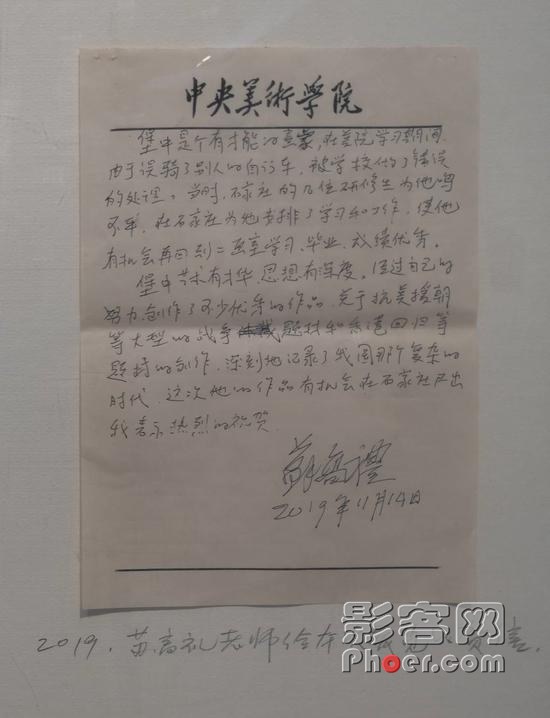 中央美術学院
堡中是个有才能的画家，在美院学习期间
由于误骑了别人的自行车，被学校做了错误
的处理。当时，石家庄的几位研修生为他鸣
不平，在石家庄为他安排了学习和工作，使他
有机会再回到二画室学习，毕业，成绩优秀。
堡中艺术有才华，思想有深度，通过自己的
努力，创作了不少优秀的作品，关于抗美援朝
等大型的战争题材和香港回归等
题材的创作，深刻地记录了我国那个复杂的
时代，这次他的作品有机会在石家庄展出
我表示热烈的祝贺。
苏高礼
2019年11月14日
2019.苏高礼老师给本
言.
影客网
Phoer.com